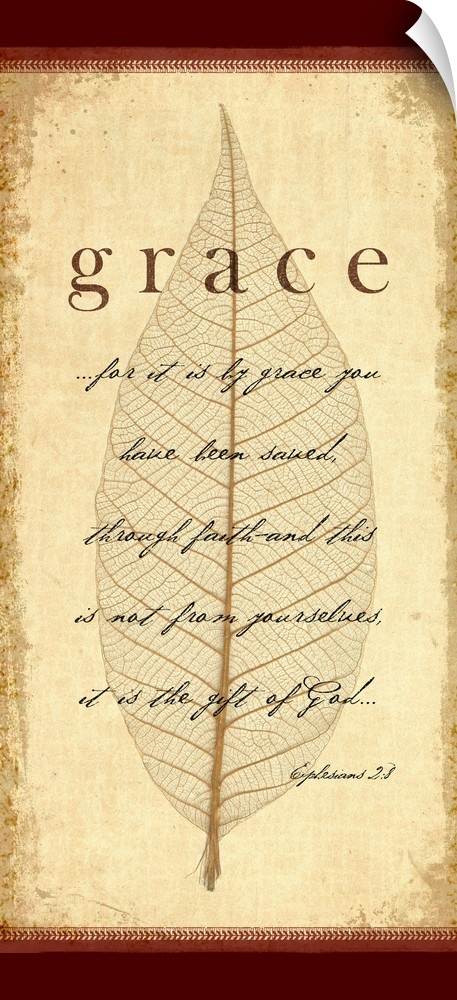 grace
...for it is by grace you
have been saved,
through faith-and this
is not from yourselves,
it is the gift of God...
Ephesians 2:8